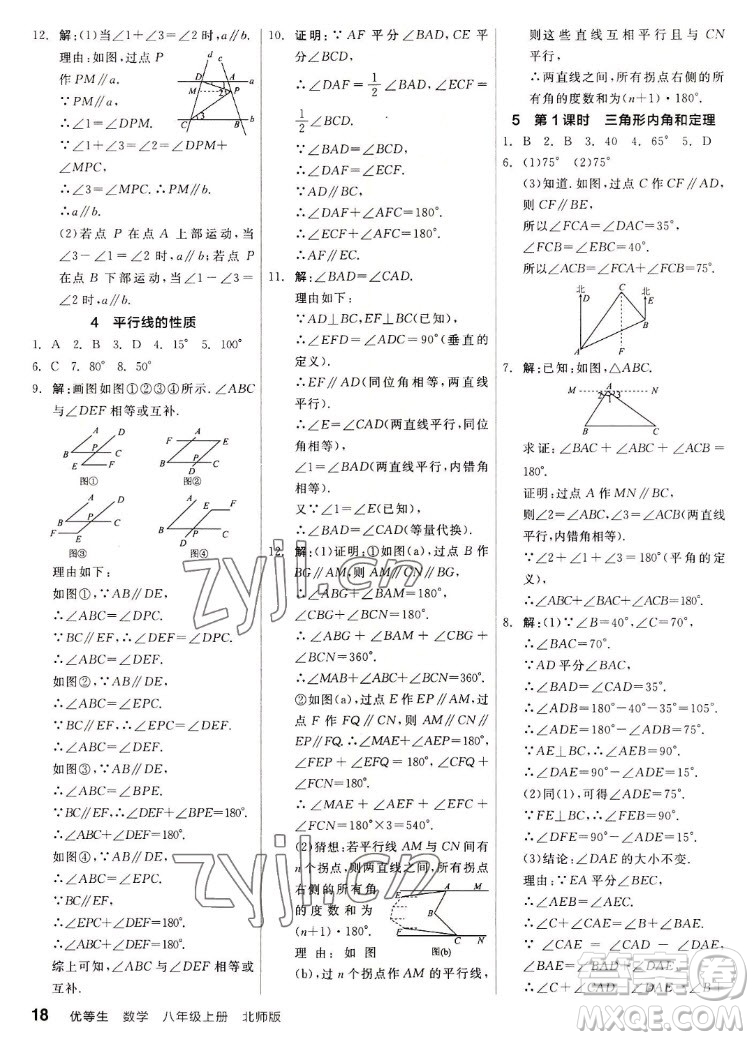 12. 解:(1)当∠1=∠2+∠3时,a∥b.
理由:如图,过点 P
作 PM∥a.
∵PM∥a,
∴∠1=∠DPM.
∵∠1=∠2+∠3,
∠1=∠DPM=∠2+
∠MPC,
∴∠3=∠MPC. ∴PM∥b.
∴a∥b.
(2)若点 P 在点 A 上部运动,当
∠3-∠1=∠2 时,a∥b;若点 P
在点 B 下部运动,当∠1-∠3=
∠2时,a∥b.
4 平行线的性质
1. A 2. B 3. D 4. 15° 5. 100°
6. C 7. 80° 8. 50°
9. 解:画图如图①②③④所示. ∠ABC
与∠DEF 相等或互补.
图①
图②
图③
图④
理由如下:
如图①,∵AB∥DE,
∴∠ABC=∠DPC.
∵BC∥EF,∴∠DPC=∠DEF.
∴∠ABC=∠DEF.
如图②,∵AB∥DE,
∴∠ABC=∠EPC.
∵BC∥EF,∴∠EPC=∠DEF.
∴∠ABC=∠DEF.
如图③,∵AB∥DE,
∴∠ABC=∠BPE.
∵BC∥EF,∴∠DEF+∠BPE=180°.
∴∠ABC+∠DEF=180°.
如图④,∵AB∥DE,
∴∠ABC=∠EPC.
∵BC∥EF,
∴∠EPC+∠DEF=180°.
∴∠ABC+∠DEF=180°.
综上可知,∠ABC与∠DEF相等或
互补.
10. 证明:∵AF 平分∠BAD,CE 平
分∠BCD,
∴∠DAF=1/2∠BAD,∠ECF=
1/2∠BCD.
∵∠BAD=∠BCD,
∴∠DAF=∠ECF.
∵AD∥BC,
∴∠DAF+∠AFC=180°.
∴∠ECF+∠AFC=180°.
∴AF∥EC.
11. 解:∠BAD=∠CAD.
理由如下:
∵AD⊥BC,EF⊥BC(已知),
∴∠EFD=∠ADC=90°(垂直的
定义).
∴EF∥AD(同位角相等,两直线平
行).
∴∠E=∠CAD(两直线平行,同位
角相等),
∠1=∠BAD(两直线平行,内错角
相等).
又∵∠1=∠E(已知),
∴∠BAD=∠CAD(等量代换).
12. 解:(1)证明:①如图(a),过点 B 作
BG∥AM,则 AM∥BG∥CN.
∴∠ABG+∠BAM=180°,
∠CBG+∠BCN=180°.
∴∠ABG+∠BAM+∠CBG+
∠BCN=360°.
∴∠MAB+∠ABC+∠BCN=360°.
②如图(a),过点 E 作 EP∥AM,过
点 F 作 FQ∥CN,则∠MAE+
∠AEP=180°,
∠FEP+∠EFQ=180°,∠CFQ+
∠FCN=180°.
∴∠MAE+∠AEF+∠EFC+
∠FCN=180°×3=540°.
(2)猜想:若平行线 AM与 CN间有
n个拐点,则两直线之间,所有拐点
右侧的所有角
的度数和为
(n+1)·180°.
理由:如图
图(b)
(b),过 n个拐点作 AM的平行线,
则这些直线互相平行且与 CN
平行,
∴两直线之间,所有拐点右侧的所
有角的度数和为(n+1)·180°.
5 第1课时 三角形内角和定理
1. B 2. B 3. 40 4. 65° 5. D
6. (1)75° (2)75°
(3)知道. 如图,过点 C 作 CF∥AD,
则 CF∥BE,
所以∠FCA=∠DAC=35°,
∠FCB=∠EBC=40°.
所以∠ACB=∠FCA+∠FCB=75°.
7. 解:已知:如图,△ABC.
求证:∠BAC+∠ABC+∠ACB=
180°.
证明:过点 A 作 MN∥BC,
则∠2=∠B,∠3=∠C(两直线平行,
内错角相等).
∵∠2+∠1+∠3=180°(平角的定
义),
∴∠BAC+∠B+∠C=180°.
8. 解:(1)∵∠B=40°,∠C=70°,
∴∠BAC=70°.
∵AD 平分∠BAC,
∴∠BAD=∠CAD=35°.
∴∠ADB=180°-40°-35°=105°.
∴∠ADE=180°-105°=75°.
∵AE⊥BC,∴∠AEB=90°.
∴∠DAE=90°-∠ADE=15°.
(2)同(1),可得∠ADE=75°.
∵FE⊥BC,∴∠FEB=90°.
∴∠DFE=90°-∠ADE=15°.
(3)结论:∠DAE的大小不变.
理由:∵EA平分∠BEC,
∴∠AEB=∠AEC.
∴∠C+∠CAE=∠B+∠BAE.
∵∠CAE=∠CAD-∠DAE,
∠BAE=∠BAD+∠DAE,
∴∠C+∠CAD-∠DAE=∠B+
18 优等生 数学 八年级上册 北师版
zyjl.cn
zyjl.cn